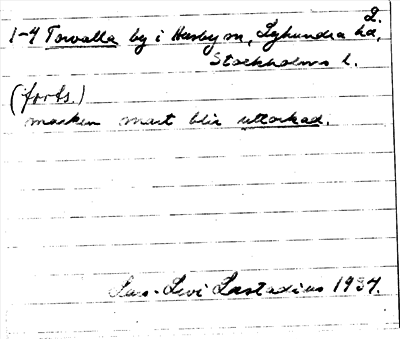 2.
1-4 Torvalla by i Husby sn, Lyhundra hd,
Stockholms l.
(forts.)
marken snart blir uttorkad.
Lars-Levi Læstadius 1934.